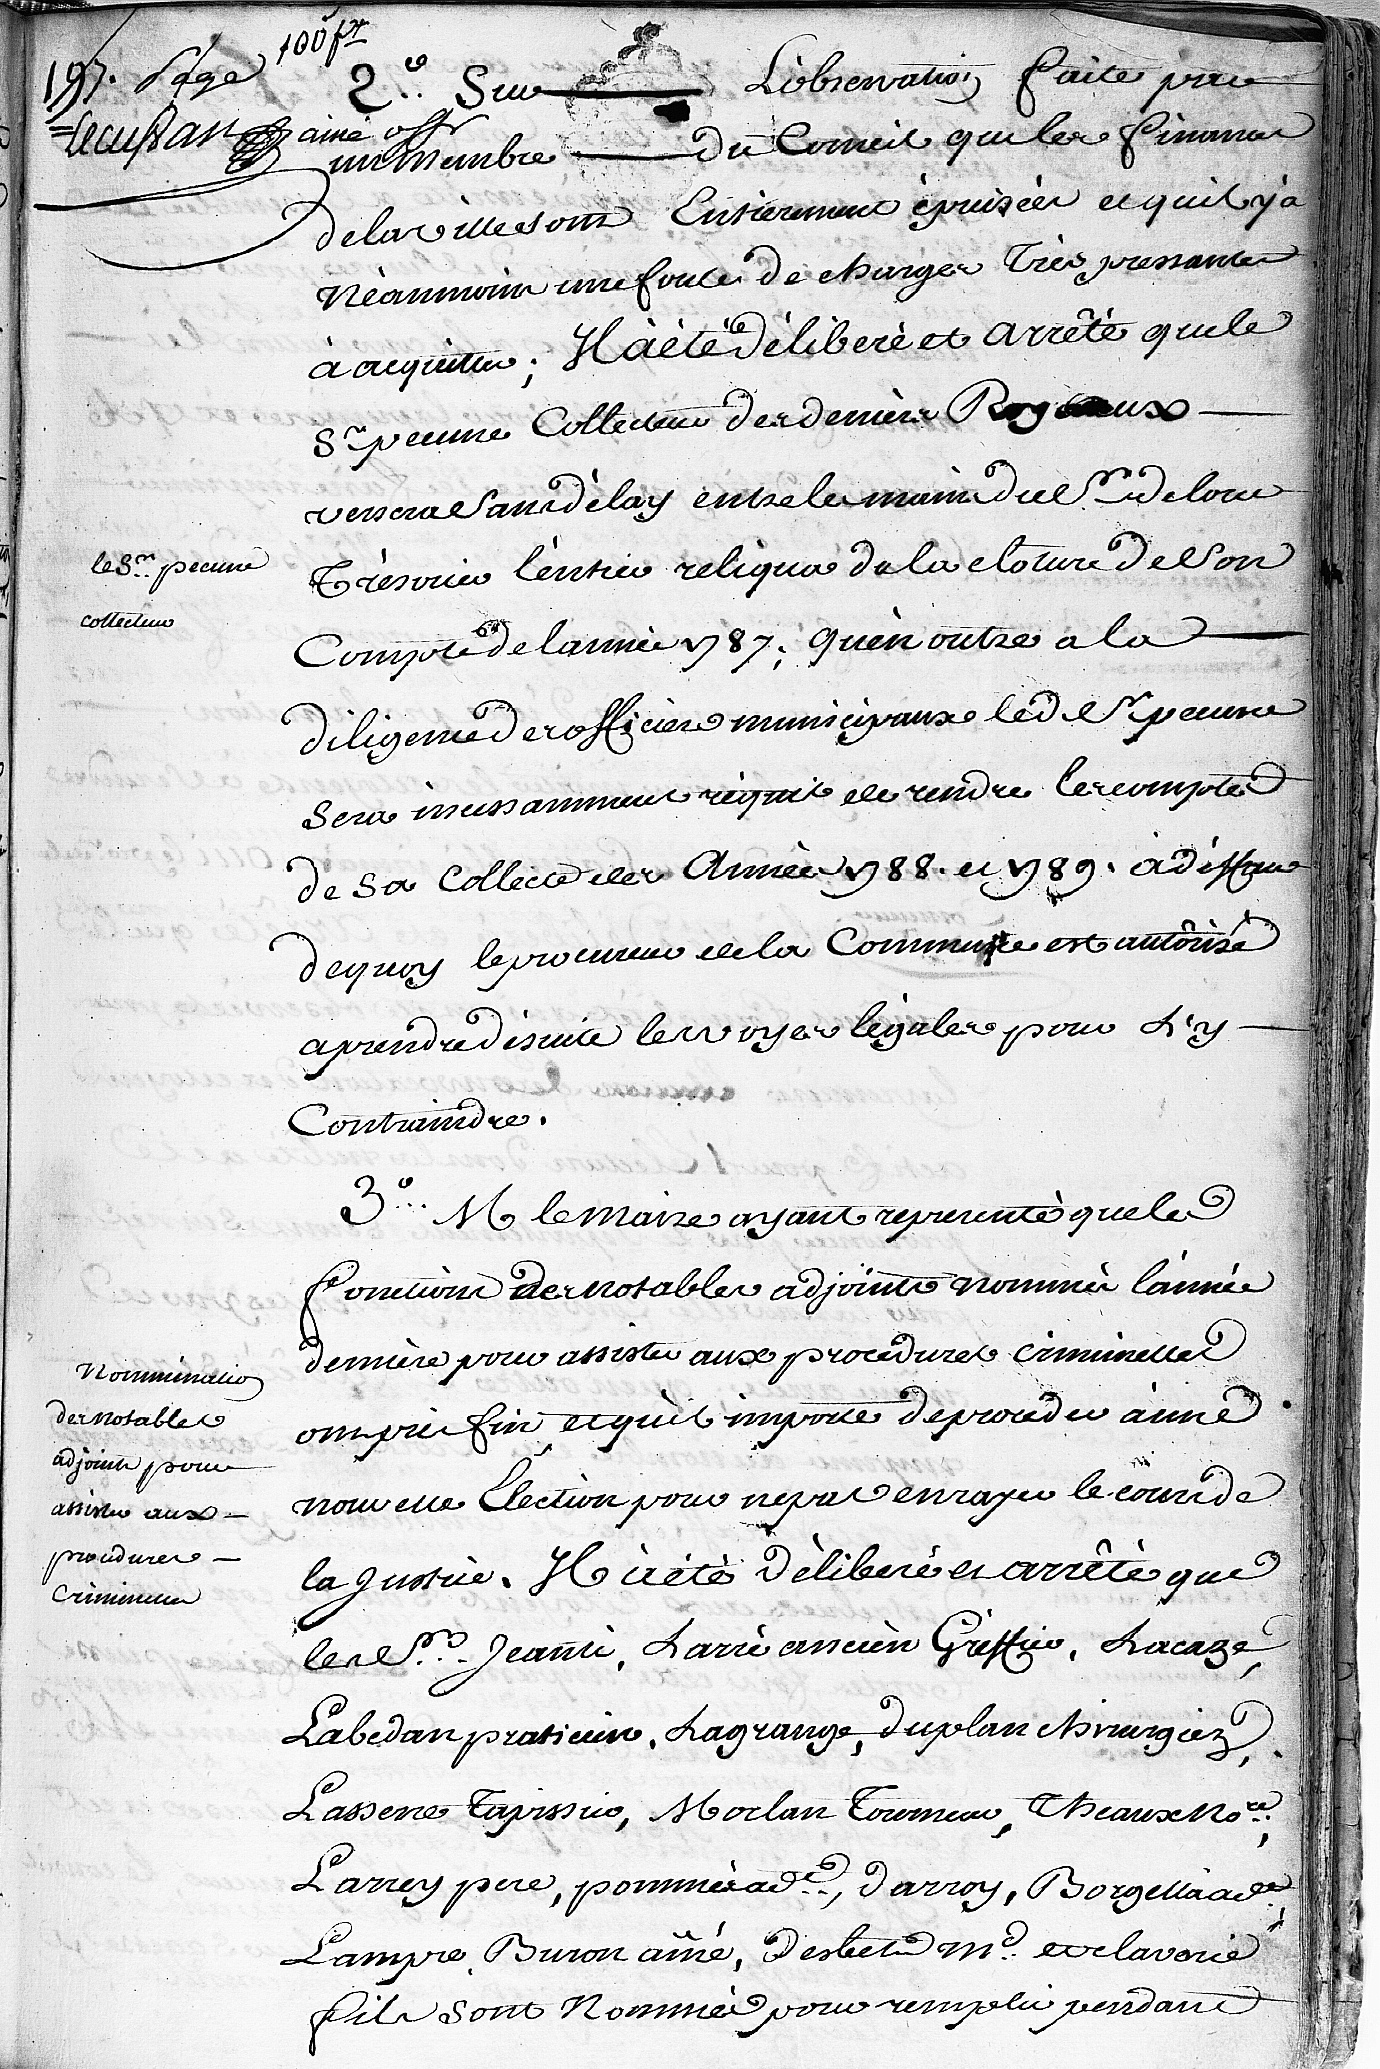 197. Page 100 fr
Lecussan ainé offr
2.° Sur L'observation faite par
un membre du Conseil que les finances
de la ville sont Entierement épuisées et quil y a
Néanmoins une foule de charges très pressantes
à acquitter; Il a été délibéré et arrêté que le
Sr. pecune Collecteur des deniers Royaux
versera Sans délay entre les mains du Sr.
le Sr. pecune
collecteur
Trésorier l'entier reliqua de la cloture de Son
Compte de l'année 1787; qu'en outre a la
diligence des officiers municipaux led. Sr. pecune
Sera incessamment réquit de rendre les comptes
de sa Collecte des Années 1788. et 1789. à déffaut
de quoy le procureur de la Commune est autôrisé
a prendre de suite les voyes légales pour L'y
Contraindre.
3.° M. le Maire ayant representé que les
fonctions des notables adjoints nommés l'année
derniere pour assister aux procédures criminelles
ont pris fin, et qu'il importe de proceder à une
nouvelle Election pour ne pas enrayer le cours de
la Justice. Il a été délibéré et arrêté que
Nomination
des notables
adjoints pour
assister aux
procedures
Criminelles
les Srs. Jeanti, Larré ancien Gréffier, Lacaze,
Labedan praticien, Lagrange, duplan chirurgien,
Lasserre Tapissier, Morlan Tourneur, Theaux No.re,
Larrey pere, pommiès ad.t, darroy, Borgella ad.t,
Lampre, Buron aîné, desbets m.d et claverie
fils sont Nommés pour remplir pendant